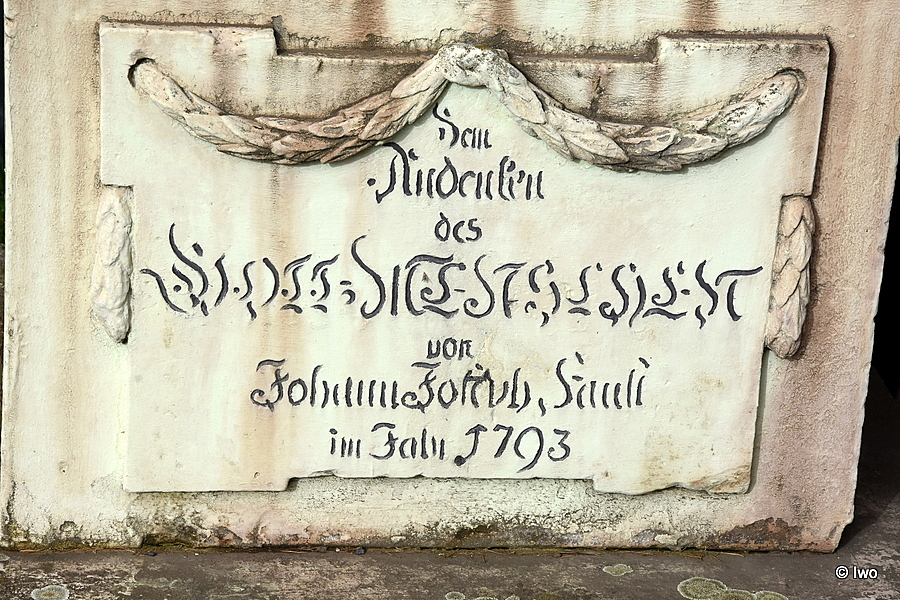 Dem
Andenken
des
von
Johann Jakob
im Jahr 1793
© Iwo